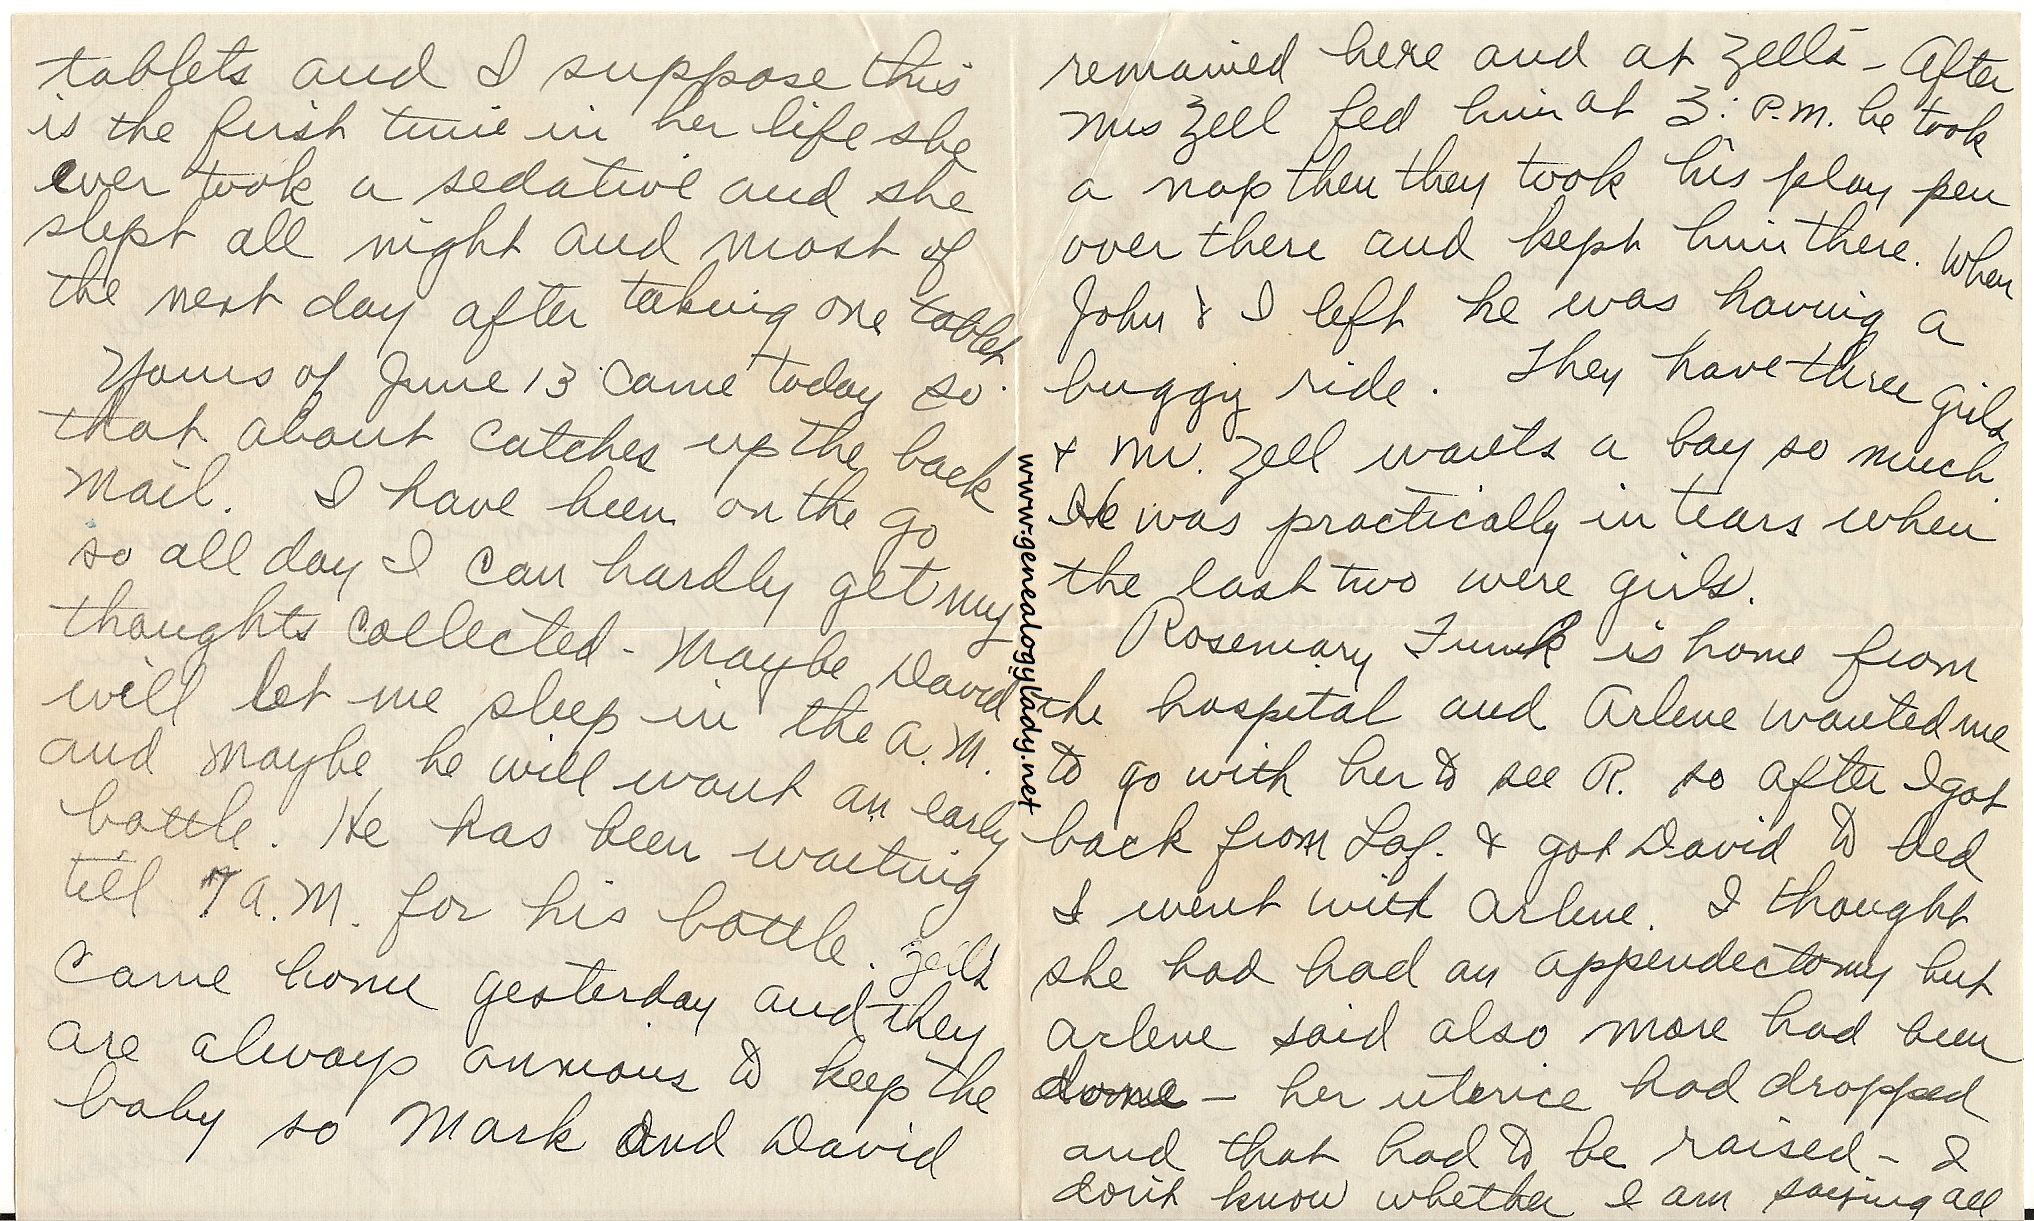 tablets and I suppose this
is the first time in her life she
ever took a sedative and she
slept all night and most of
the next day after taking one tablet.
Yours of June 13 came today so
that about catches up the back
mail. I have been on the go
so all day I can hardly get my
thoughts collected - Maybe David
will let me sleep in the A.M.
and maybe he will want an early
bottle. He has been waiting
till 7 A.M. for his bottle. Zells
came home yesterday and they
are always anxious to keep the
baby so Mark and David
remained here and at Zells - After
Mrs Zell fed him at 3: P.M. he took
a nap then they took his play pen
over there and kept him there. When
John & I left he was having a
buggy ride. They have three girls
& Mr. Zell wants a boy so much.
He was practically in tears when
the last two were girls.
Rosemary Funk is home from
the hospital and Arlene wanted me
to go with her to see R. so after I got
back from Laf. & got David to bed
I went with Arlene. I thought
she had had an appendectomy but
Arlene said also more had been
done - her uterice had dropped
and that had to be raised - I
don't know whether I am saying all
www.genealogylady.net